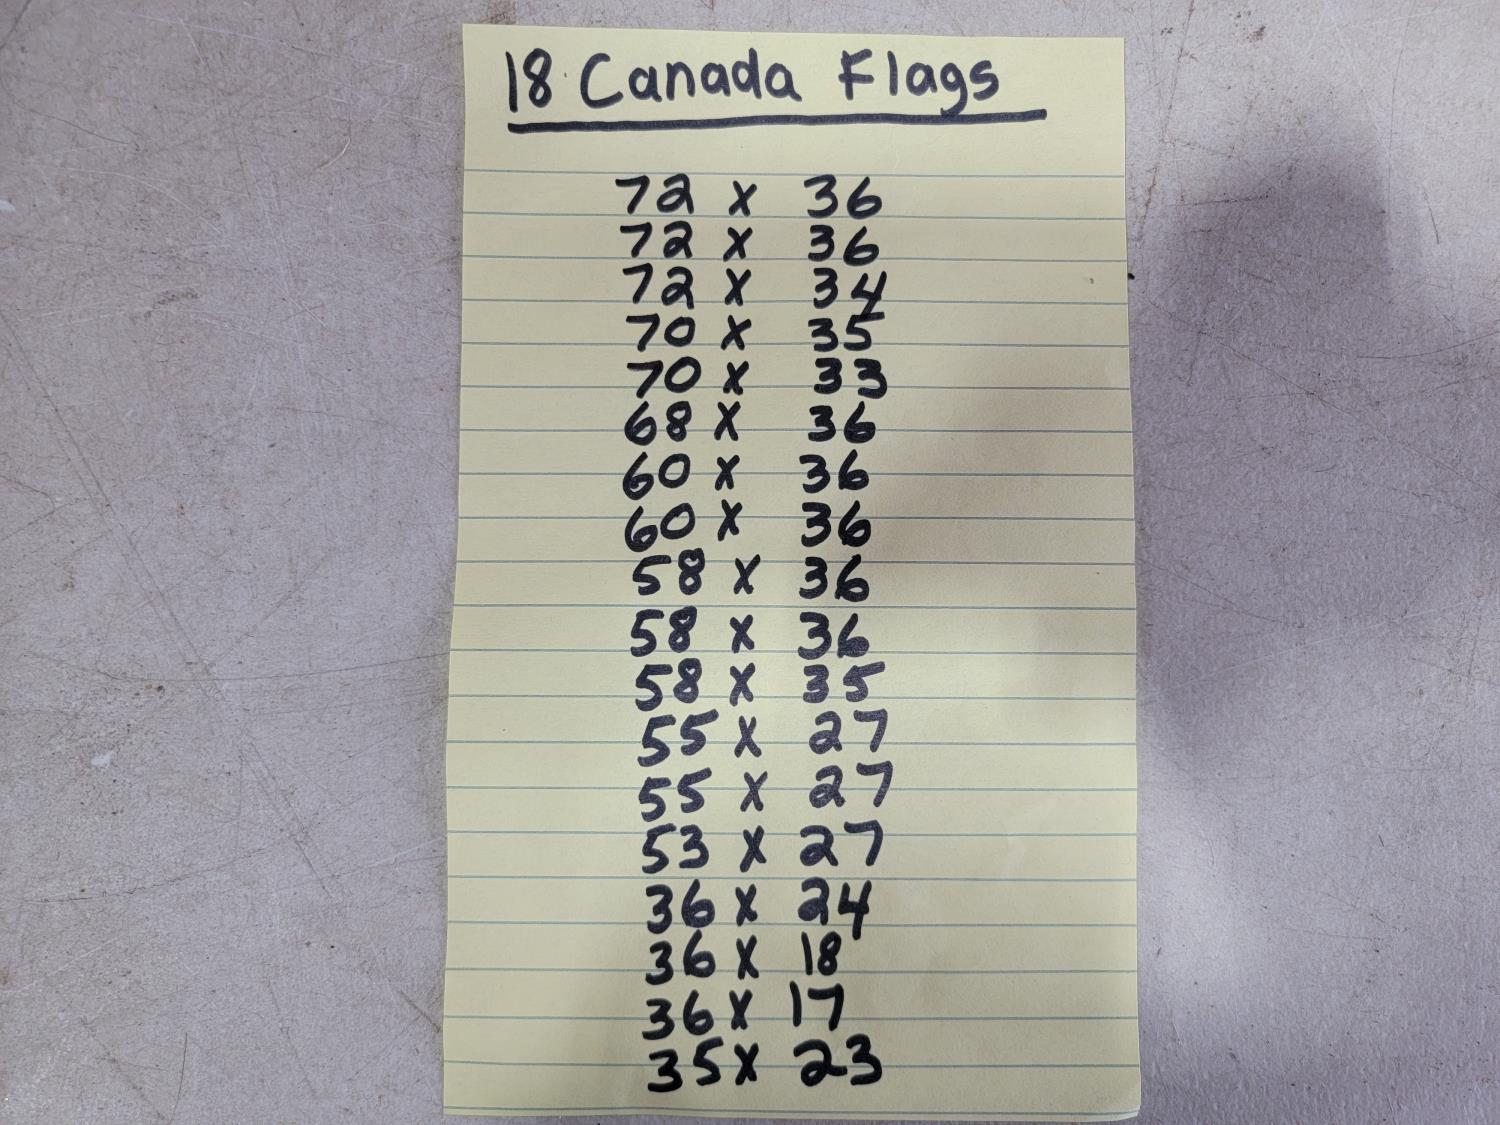 18 Canada Flags
72 x 36
72 x 36
72 x 34
70 x 35
70 x 33
68 x 36
60 x 36
60 x 36
58 x 36
58 x 36
58 x 35
55 x 27
55 x 27
53 x 27
36 x 24
36 x 18
36 x 17
35 x 23